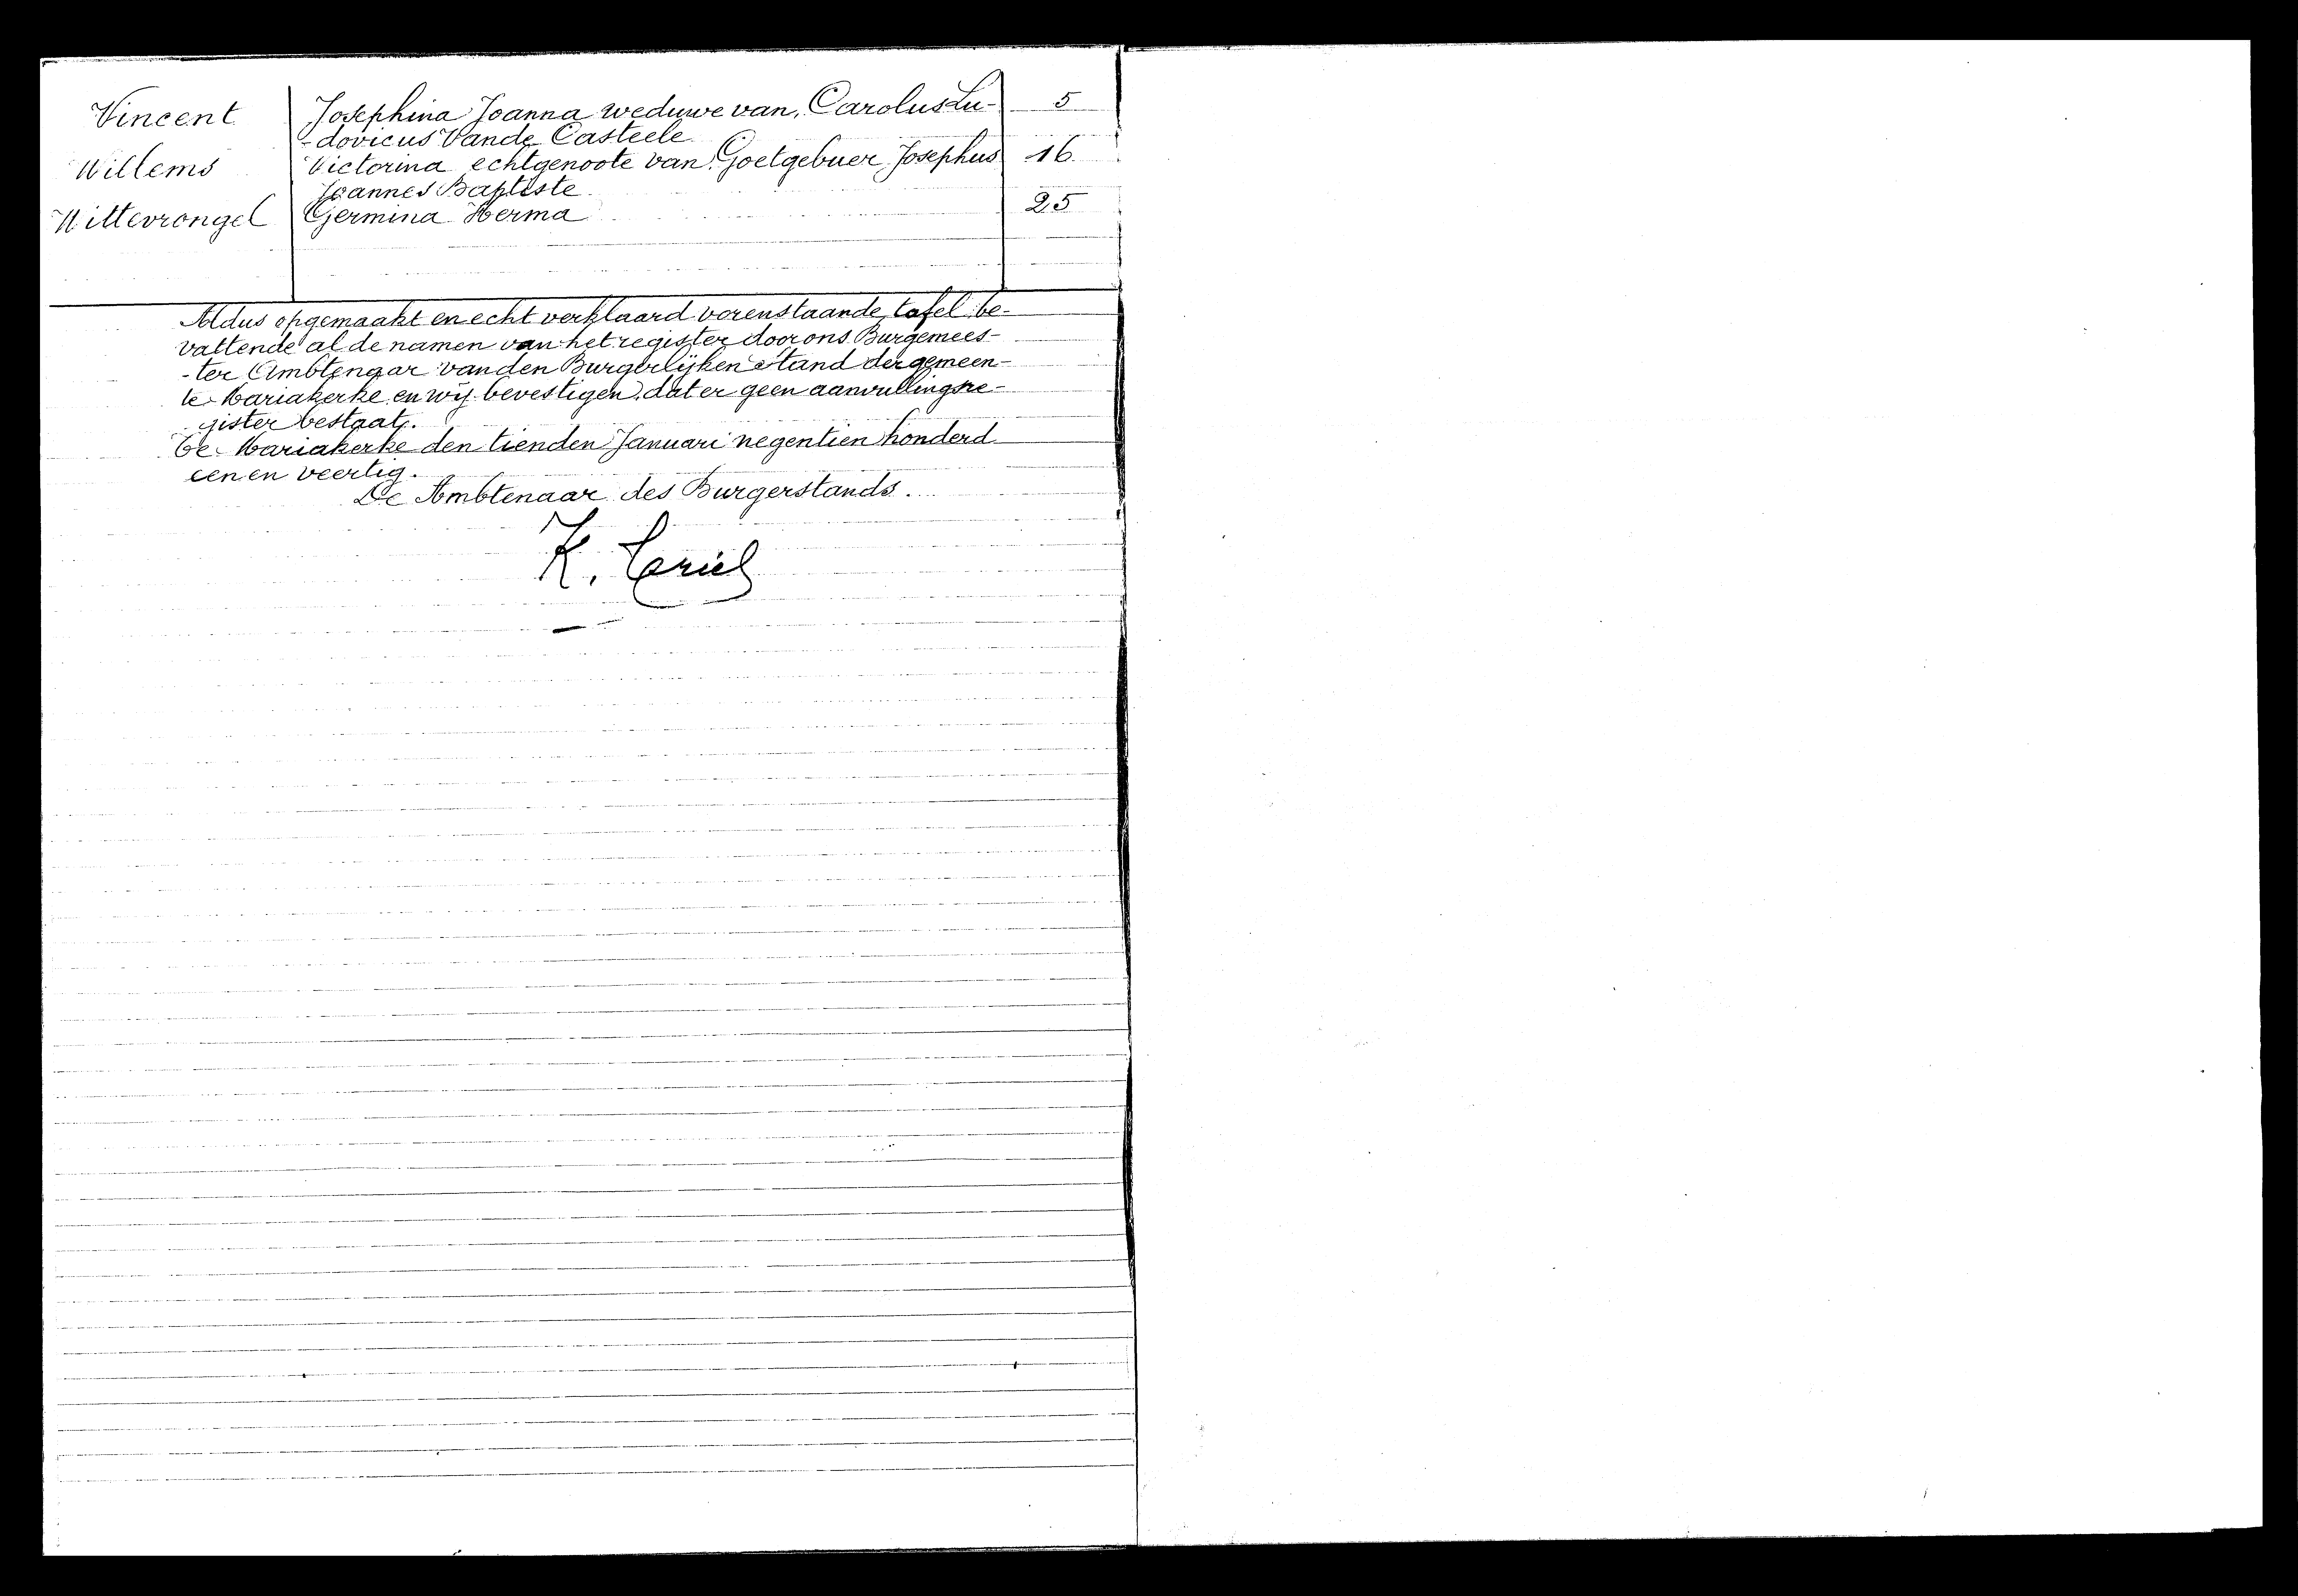 Vincent Josephina Joanna weduwe van Carolus Lu- 5
-dovicus Vande Casteele
Willems Victorina echtgenoote van Goetgebuer Josephus 16
Joannes Baptiste
Wittevrongel Germina Herma 25
Aldus opgemaakt en echt verklaard vorenstaande tafel be-
vattende al de namen van het register door ons Burgemees-
-ter Ambtenaar van den Burgerlijken Stand der gemeen-
te Mariakerke en wij bevestigen dat er geen aanvullingsre-
gister bestaat.
Te Mariakerke den tienden Januari negentien honderd
een en veertig.
De Ambtenaar des Burgerstands.
K.